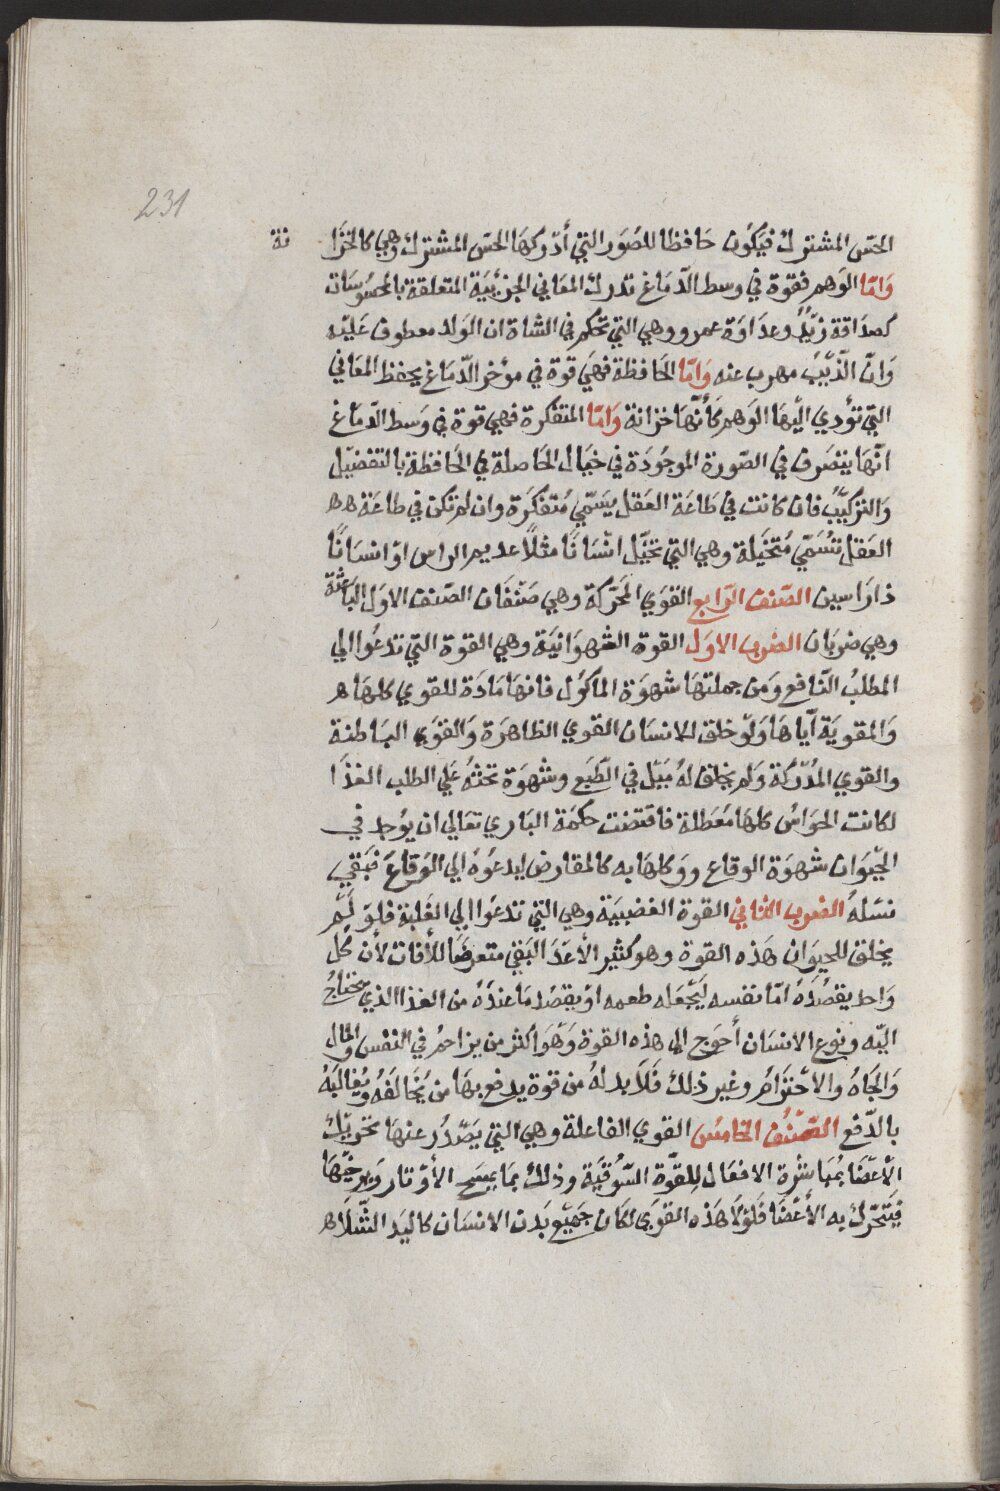 231
الحسّ المشترك فيَكُون حَافظا للصُوَر التي أدْركهَا الحسّ المشترك وهي كالخزَا نة
وَامّا الوَهم فقوة في وسط الدّمَاغ تدرك المعَاني الجزئيَة المتعلقة بالمحسُوسَات
كصدَاقة زيْدٍ وعدَاوَة عمرو وهي التي تحكم في الشاة ان الوَلد معطوف عَليْه
وَانّ الذّيْبَ مهروب عنه وَامّا الحَافظة فهيَ قوة في مؤخر الدّمَاغ يحفظ المعَاني
التي تؤدي اليْهَا الوَهم كَأنّهَا خزانة وَامّا المتفكرة فهي قوة في وَسط الدمَاغ
انّهَا يتصَرف في الصّورة الموجُودَة في خيَال الحَاصلة في الحَافظة بالتفضيْل
وَالتركيْبْ فان كانت في طَاعَة العَقل يسَمّي مُتفكرَة وان لم تكن في طاعَة هه
العَقل تسُمَّي مُتخيَلة وهي التي تخيَّل انسَانًا مثلًا عديم الراس اوْ انسَانًا
ذا رَاسين الصّنف الرّابع القوَي المحَرّكة وهي صَنْفَان الصّنف الاوَل البَاعثة
وهي ضربَان الضرب الاوَل القوة الشهوَانيَة وهي القوة التي تدعُوا الي
المطلبُ النّافع وَمن جملتهَا شهوَة المأكوُل فانهَا مَادَة للقوي كلهَا ه
وَالمقويَة ايّاهَا وَلَوْ خلق للانسَان القوي الظاهرَة وَالقوَي البَاطنة
والقوي المُدْركَة وَلم يخلق لهُ مَيْل في الطّبَع وشهوَة تحثهُ عَلي الطلب الغذَا
لكانت الحوَاسُ كلهَا مُعَطلة فاقتضت حكمَة البَاري تعَالي ان يوُجد في
الحيْوَان شهوَة الوقاع ووَكلهَا به كالمقَارض ليدعُوهُ الي الوَقاعَ فيَبْقي
نسَلهُ الضرب الثاني القوة الغضبيَة وهي التي تدعُوا الي الغَلبَة فلوْ لَمْ
يخلق للحيوَان هَذه القوة وهو كثير الأعدَا لبَقي متعرضَا للأفات لأن كُل
وَاحد يقصُدَهُ امّا نفسه ليَجْعَله طعمه اوْ يقصُد مَا عندَهُ من الغذا الذي يحَتاجُ
اليْه ونوع الانسَان أحوَج الي هذه القوة وَهوَ اكثر من يزاحمُ في النفس وَالمال
وَالجَاهُ والأحْترَامُ وغير ذلك فَلَا بد لهُ من قوة يدفع بهَا من يُخَالفَهُ ويُغَالبَهُ
بالدّفع الصّنْفُ الخامسُ القوي الفاعلة وهي التي يَصْدُر عنهَا تحريْك
الأعضَا بمُبَاشرة الافعَال للِقوّة السّوُقيّة وذلك بمَا يسَح الأوْتار وَيرخيّهَا
فيَتحَرّك به الأعْضَا فلوْلَا هَذه القوَي لكَان جَميْع بَدن الانسَان كاليَد الشّلَاه